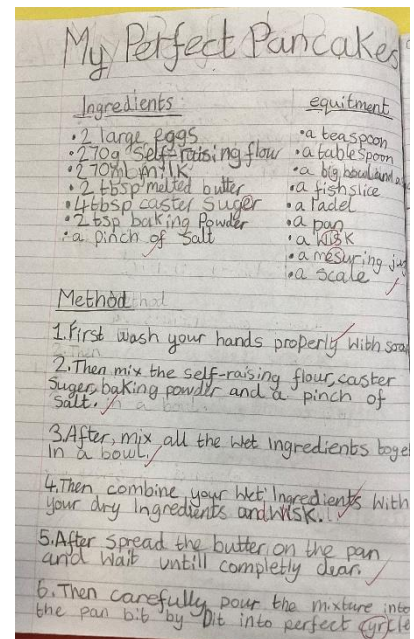 My Perfect Pancakes
Ingredients:
• 2 large eggs
• 270g self-raising flour
• 270ml milk
• 2 tbsp melted butter
• 4tbsp caster Suger
• 2 tsp baking Powder
• a pinch of salt
equitment
• a teaspoon
• a tablespoon
• a big bowl and a
• a fishslice
• a ladel
• a pan
• a wisk
• a mesuring jug
• a scale
Method
1. First wash your hands properly with soap
2. Then mix the self-raising flour, caster
Suger, baking powder and a pinch of
salt.
3. After, mix all the wet Ingredients toget
In a bowl.
4. Then combine your Wet Ingredients with
your dry Ingredients and wisk.
5. After spread the butter on the pan
and wait untill completly clear.
6. Then carefully pour the mixture into
the pan bit by bit into perfect cyrcle